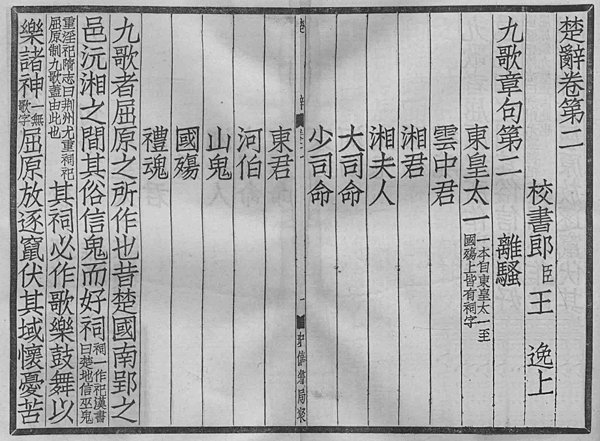 楚辭卷第二
校書郎臣王 逸上
九歌章句第二 離騷
東皇太一 一本自東皇太一至國殤上皆有祠字
雲中君
湘君
湘夫人
大司命
少司命
東君
河伯
山鬼
國殤
禮魂
九歌者屈原之所作也昔楚國南郢之
邑沅湘之間其俗信鬼而好祠 祠一作祀漢書曰楚地信巫鬼
重淫祀隋志曰荆州尤重祠祀屈原制九歌蓋由此也 其祠必作歌樂鼓舞以
樂諸神 一無歌字 屈原放逐竄伏其域懷憂苦